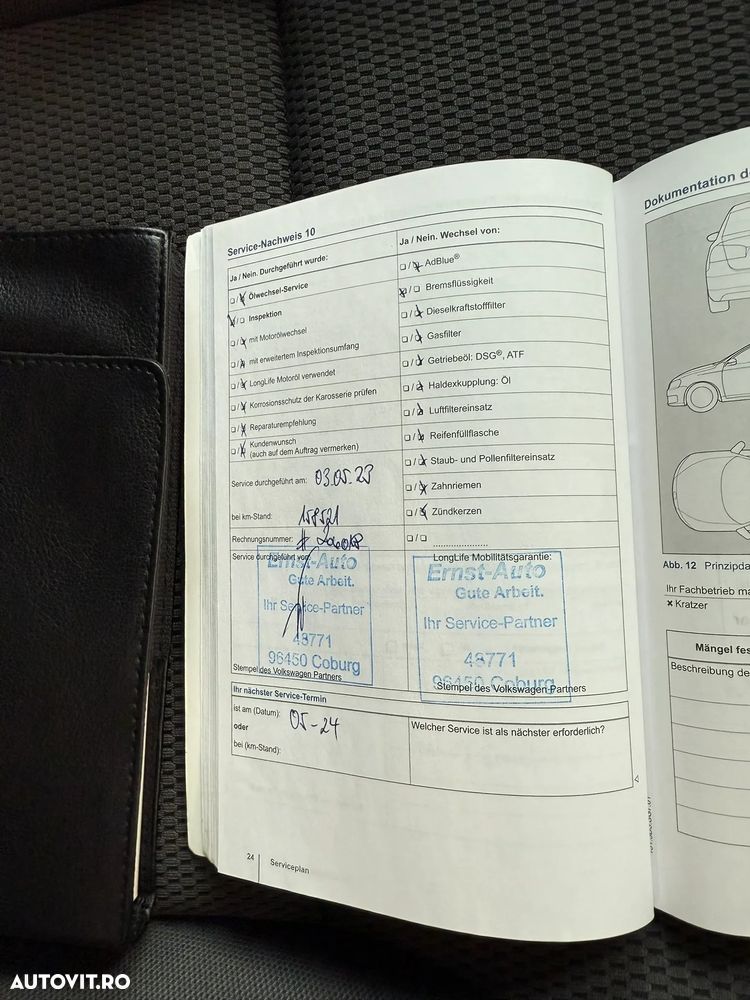 Service-Nachweis 10
Ja / Nein. Durchgeführt wurde:
☐/☒ Ölwechsel-Service
☒/☐ Inspektion
☐/☒ mit Motorölwechsel
☐/☒ mit erweitertem Inspektionsumfang
☐/☒ LongLife Motoröl verwendet
☐/☒ Korrosionsschutz der Karosserie prüfen
☐/☒ Reparaturempfehlung
☐/☒ Kundenwunsch
(auch auf dem Auftrag vermerken)
Service durchgeführt am: 03.05.23
bei km-Stand: 158521
Rechnungsnummer:
Service durchgeführt von:
Ernst-Auto
Gute Arbeit.
Ihr Service-Partner
48771
96450 Coburg
Stempel des Volkswagen Partners
Ja / Nein. Wechsel von:
☐/☒ AdBlue®
☒/☐ Bremsflüssigkeit
☐/☒ Dieselkraftstofffilter
☐/☒ Gasfilter
☐/☒ Getriebeöl: DSG®, ATF
☐/☒ Haldexkupplung: Öl
☐/☒ Luftfiltereinsatz
☐/☒ Reifenfüllflasche
☐/☒ Staub- und Pollenfiltereinsatz
☐/☒ Zahnriemen
☐/☒ Zündkerzen
☐/☐ ......................
LongLife Mobilitätsgarantie:
Ernst-Auto
Gute Arbeit.
Ihr Service-Partner
48771
96450 Coburg
Stempel des Volkswagen Partners
Ihr nächster Service-Termin
ist am (Datum): 05-24
oder
bei (km-Stand):
Welcher Service ist als nächster erforderlich?
24
Serviceplan
Dokumentation de
Abb. 12 Prinzipda
Ihr Fachbetrieb ma
× Kratzer
Mängel fes
Beschreibung de
AUTOVIT.RO